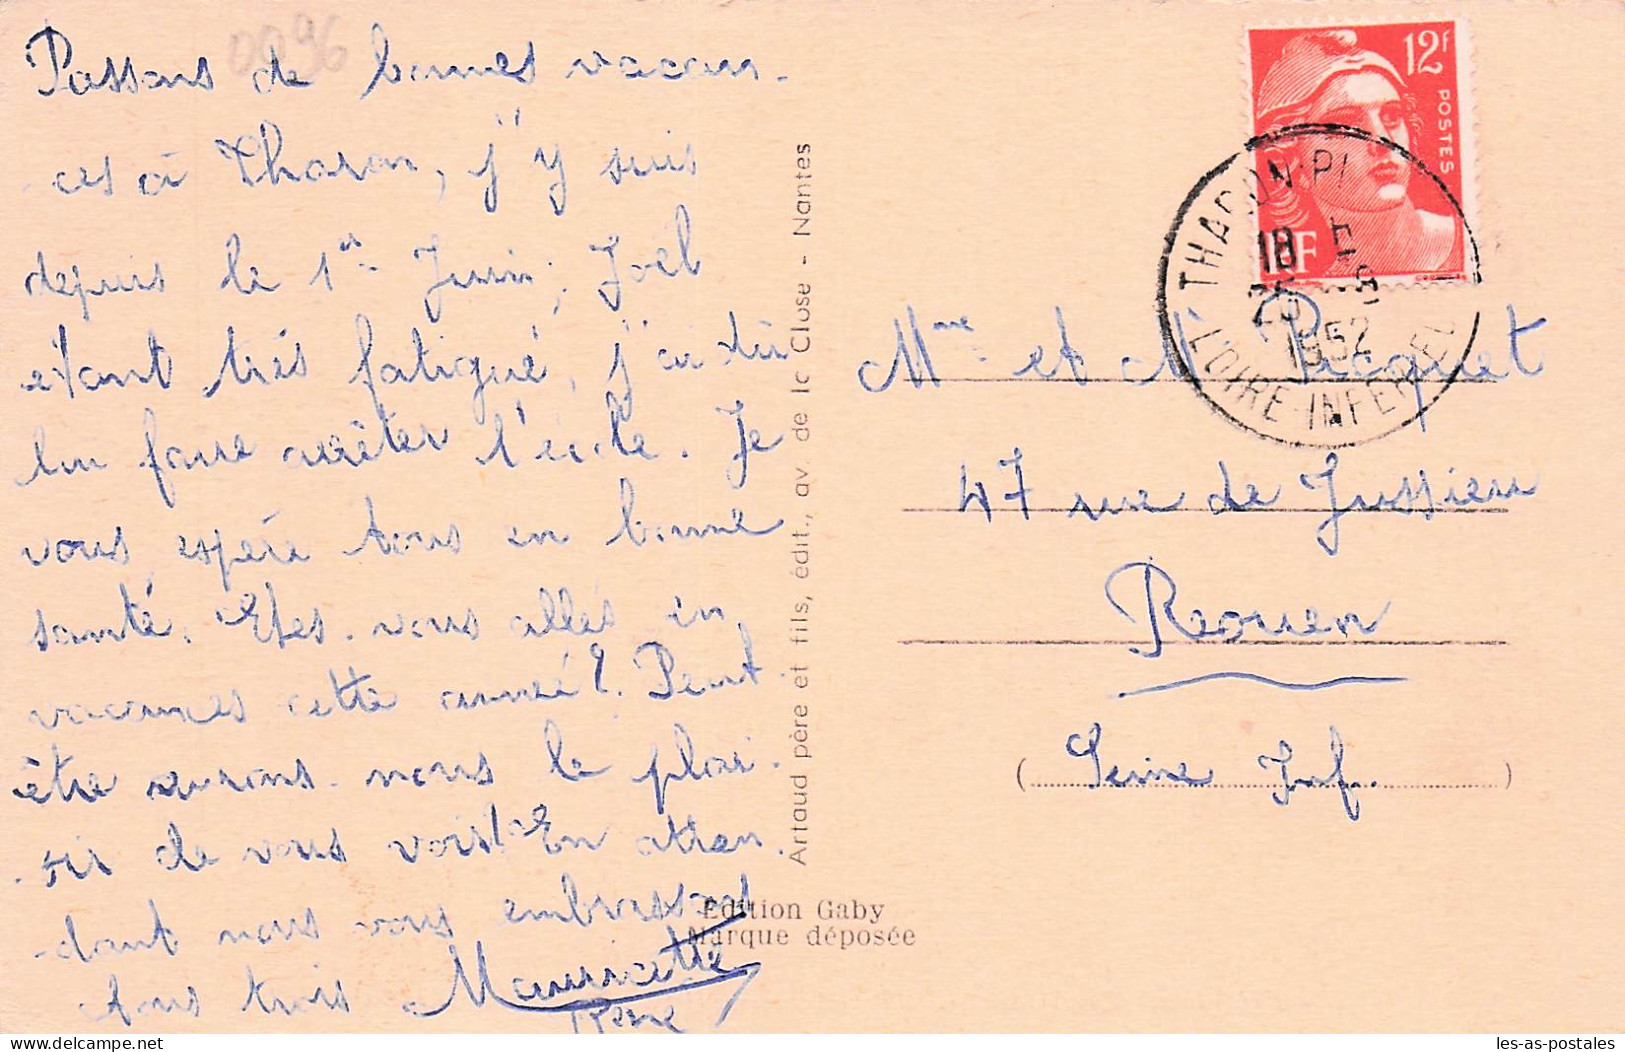 0096
Passons de bonnes vacan-
ces à Tharon, j'y suis
depuis le 1er Juin; Joël
étant très fatigué, j'ai dû
lui faire arrêter l'école. Je
vous espère tous en bonne
santé. Etes-vous allés en
vacances cette année? Peut-
être aurons-nous le plai-
sir de vous voir! En atten-
dant nous vous embrassons
tous trois Mauricette
René
Artaud père et fils, édit., av. de la Close - Nantes
Edition Gaby
Marque déposée
12f
POSTES
RF
THARON-PL
18
1952
LOIRE-INFER
Mme et Mr Picquet
47 rue de Jussieu
Rouen
(Seine Inf.)
les-as-postales
Delcampe.net